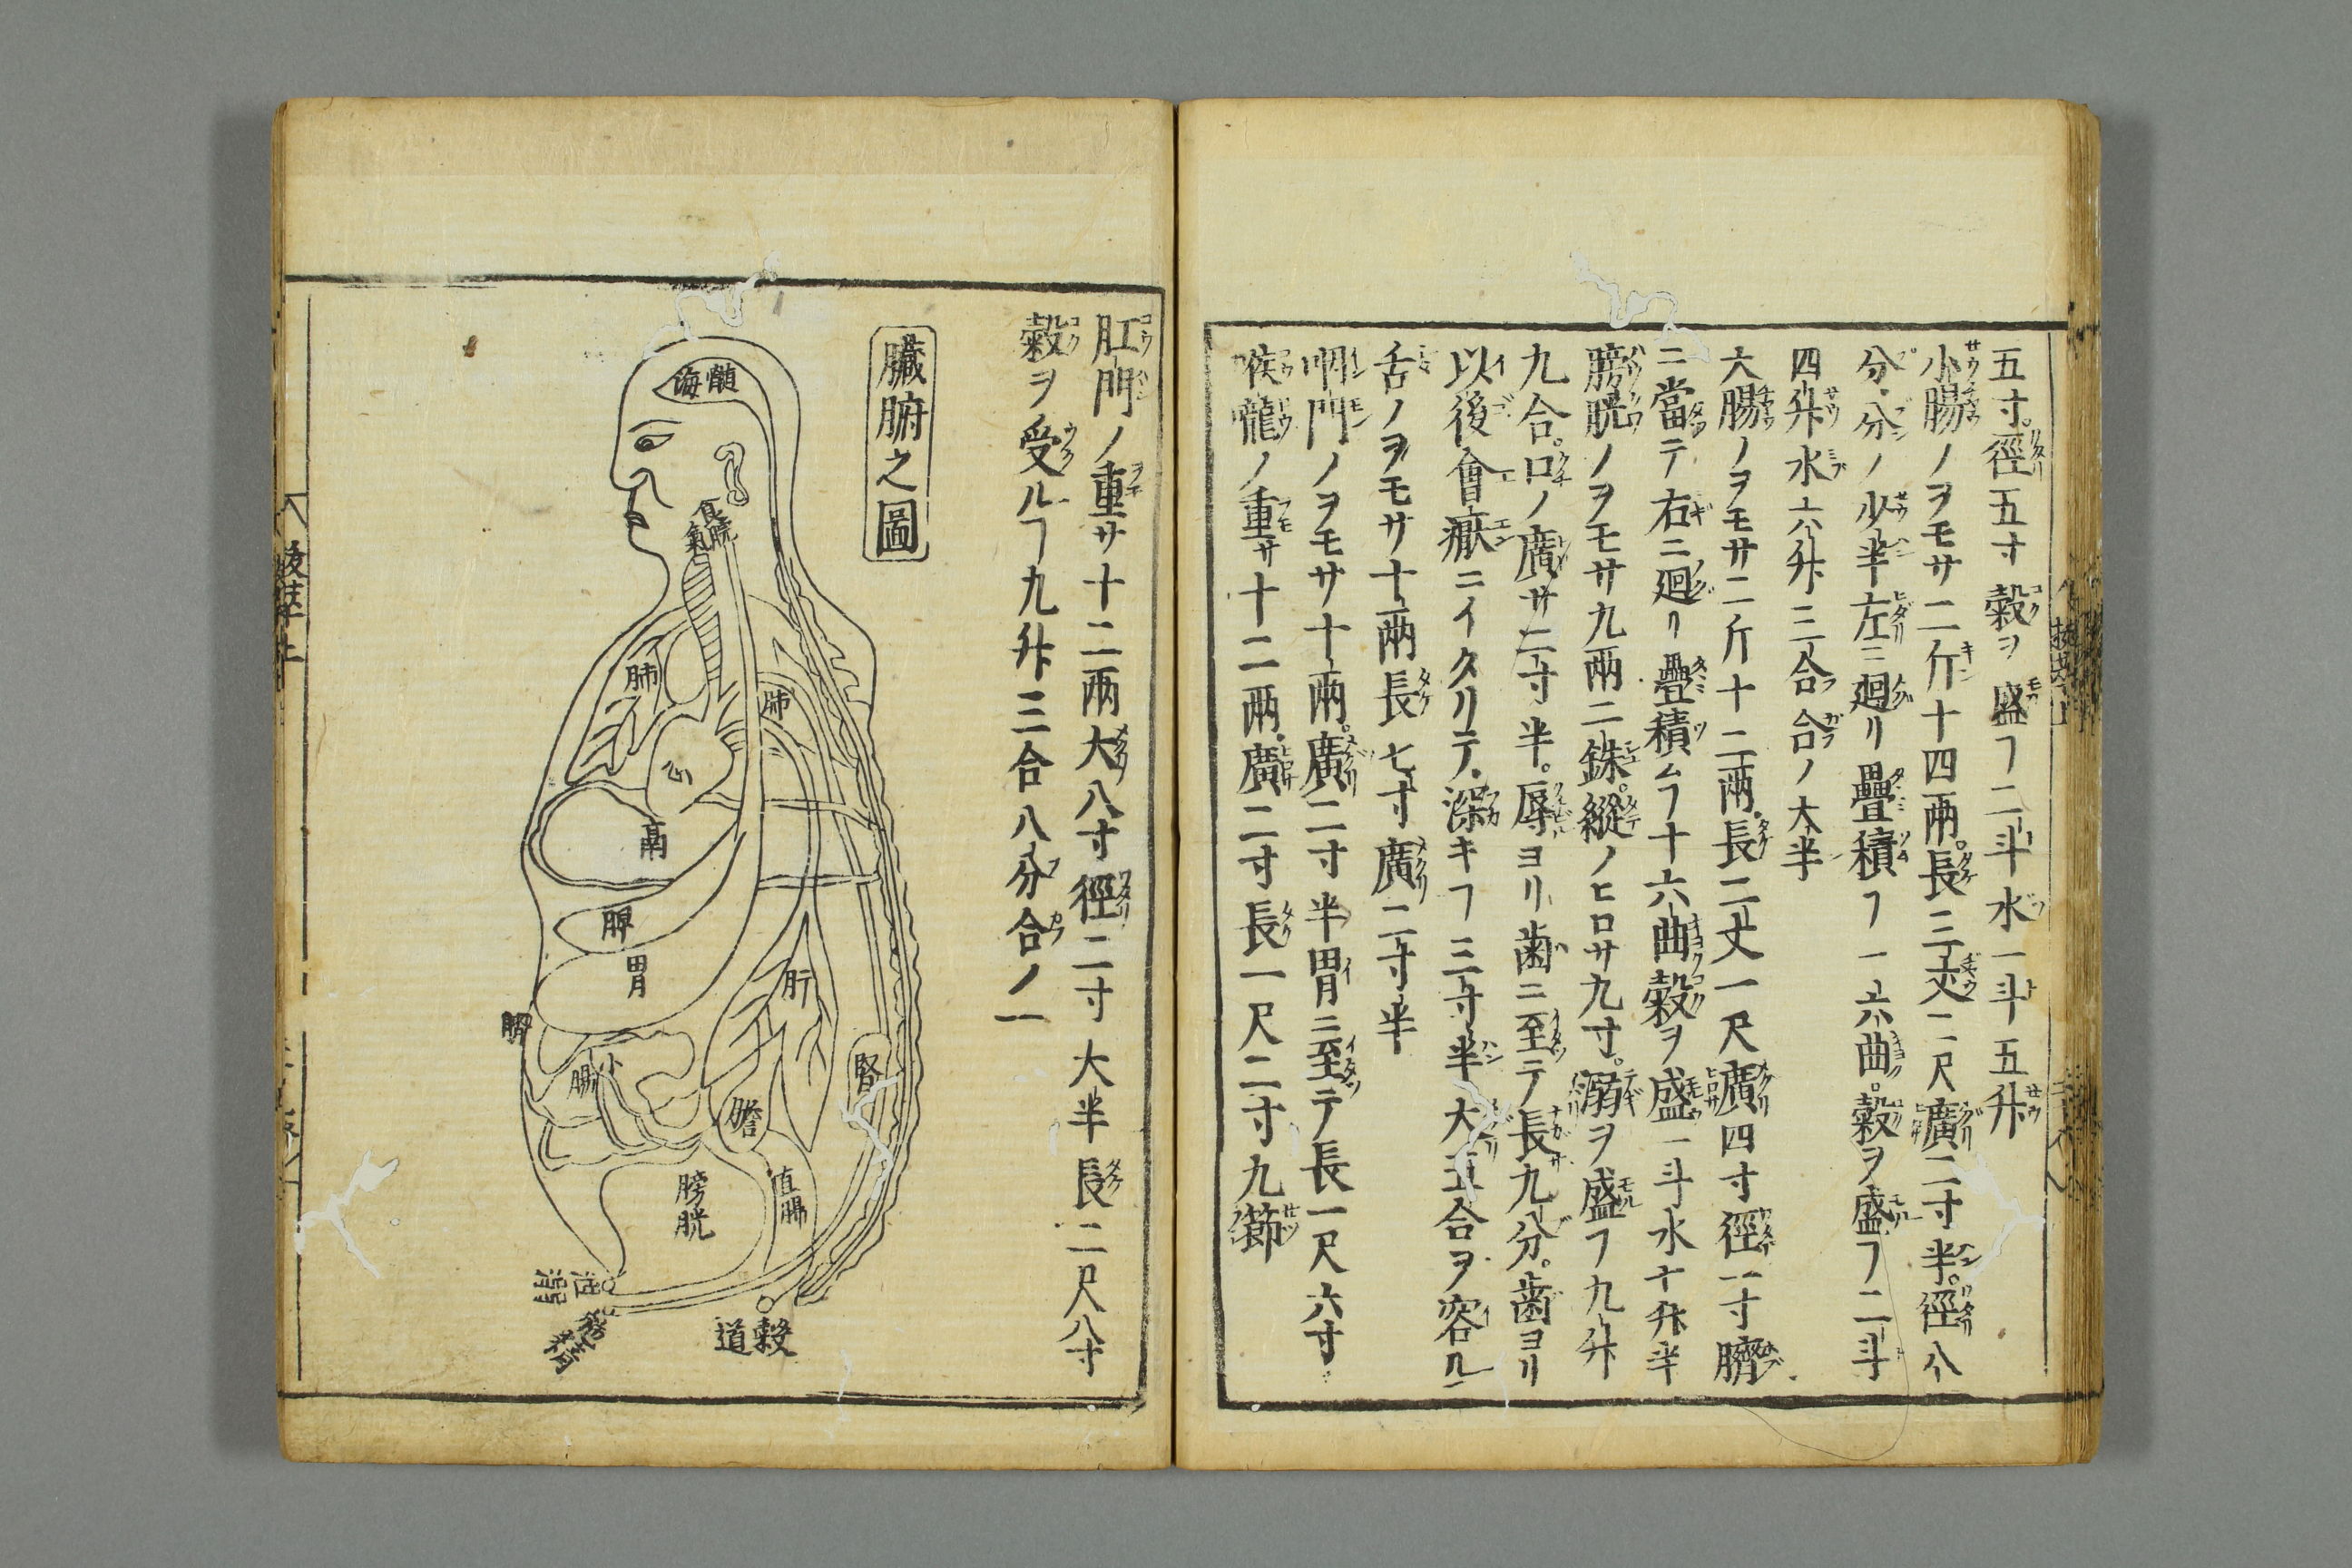 五寸。徑五寸穀ヲ盛ヿ二斗水一斗五升
小腸ノヲモサ二斤十四兩。長三丈二尺廣二寸半。徑八
分。分ノ少半左ニ廻リ疊積ヿ一六曲。穀ヲ盛ヿ二斗
四升水六升三合合ノ大半
大腸ノヲモサ二斤十二兩。長二丈一尺廣四寸徑一寸臍
ニ當テ右ニ廻リ疊積ムヿ十六曲穀ヲ盛一斗水七升半
膀胱ノヲモサ九兩二銖。縱ノヒロサ九寸。溺ヲ盛ヿ九升
九合。口ノ廣サ二寸半。唇ヨリ歯ニ至テ長九分。歯ヨリ
以後會厭ニイタリテ深キヿ三寸半大五合ヲ容ル
舌ノヲモサ十兩長七寸廣二寸半
咽門ノヲモサ十兩。廣二寸半胃ニ至テ長一尺六寸
喉嚨ノ重サ十二兩。廣二寸長一尺二寸九節
肛門ノ重サ十二兩大八寸徑二寸大半長二尺八寸
穀ヲ受ルヿ九升三合八分合ノ一
臓腑之圖
髄海
氣
肺
肺
心
鬲
脾
胃
肝
臍
小腸
腎
膽
膀胱
直腸
穀道